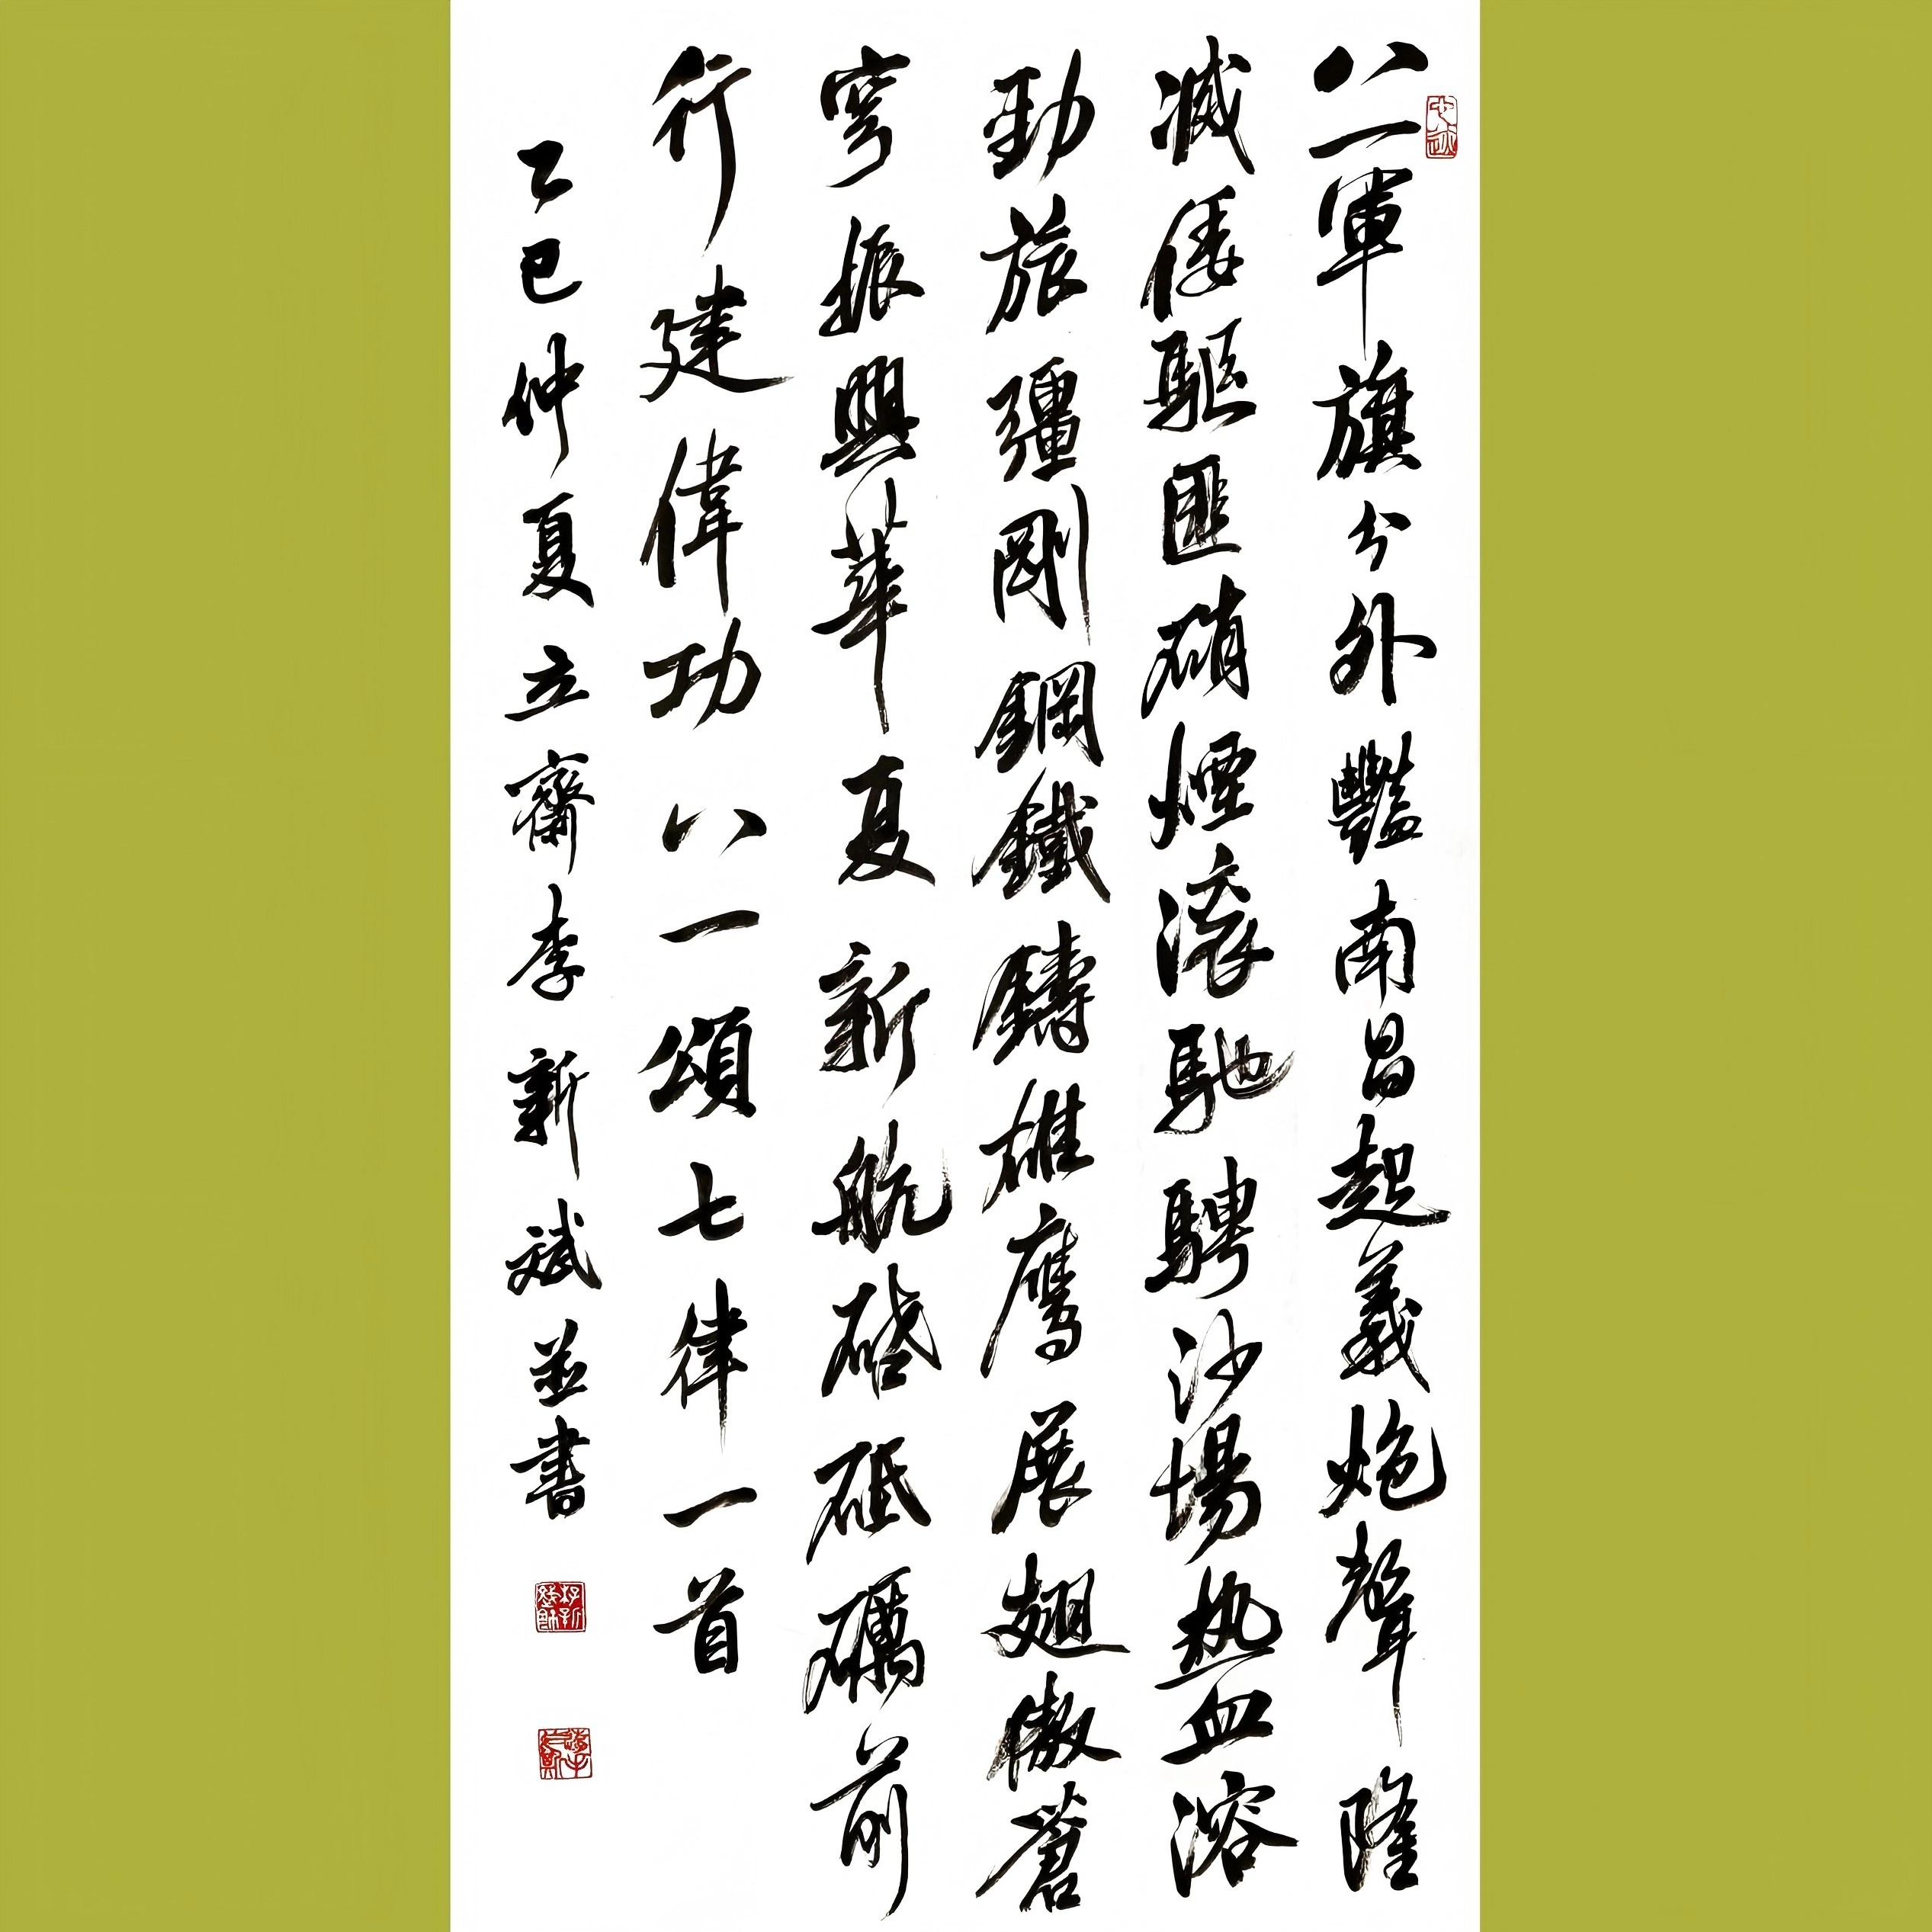 八一軍旗分外豔南昌起義炮聲隆
滅倭驅匪硝煙滾馳騁沙場熱血溶
勁旅彊剛鋼鐵鑄雄鷹展翅傲蒼
穹振興華夏新航啓砥礪前
行建偉功八一頌七律一首
乙巳仲夏立齋李新斌並書